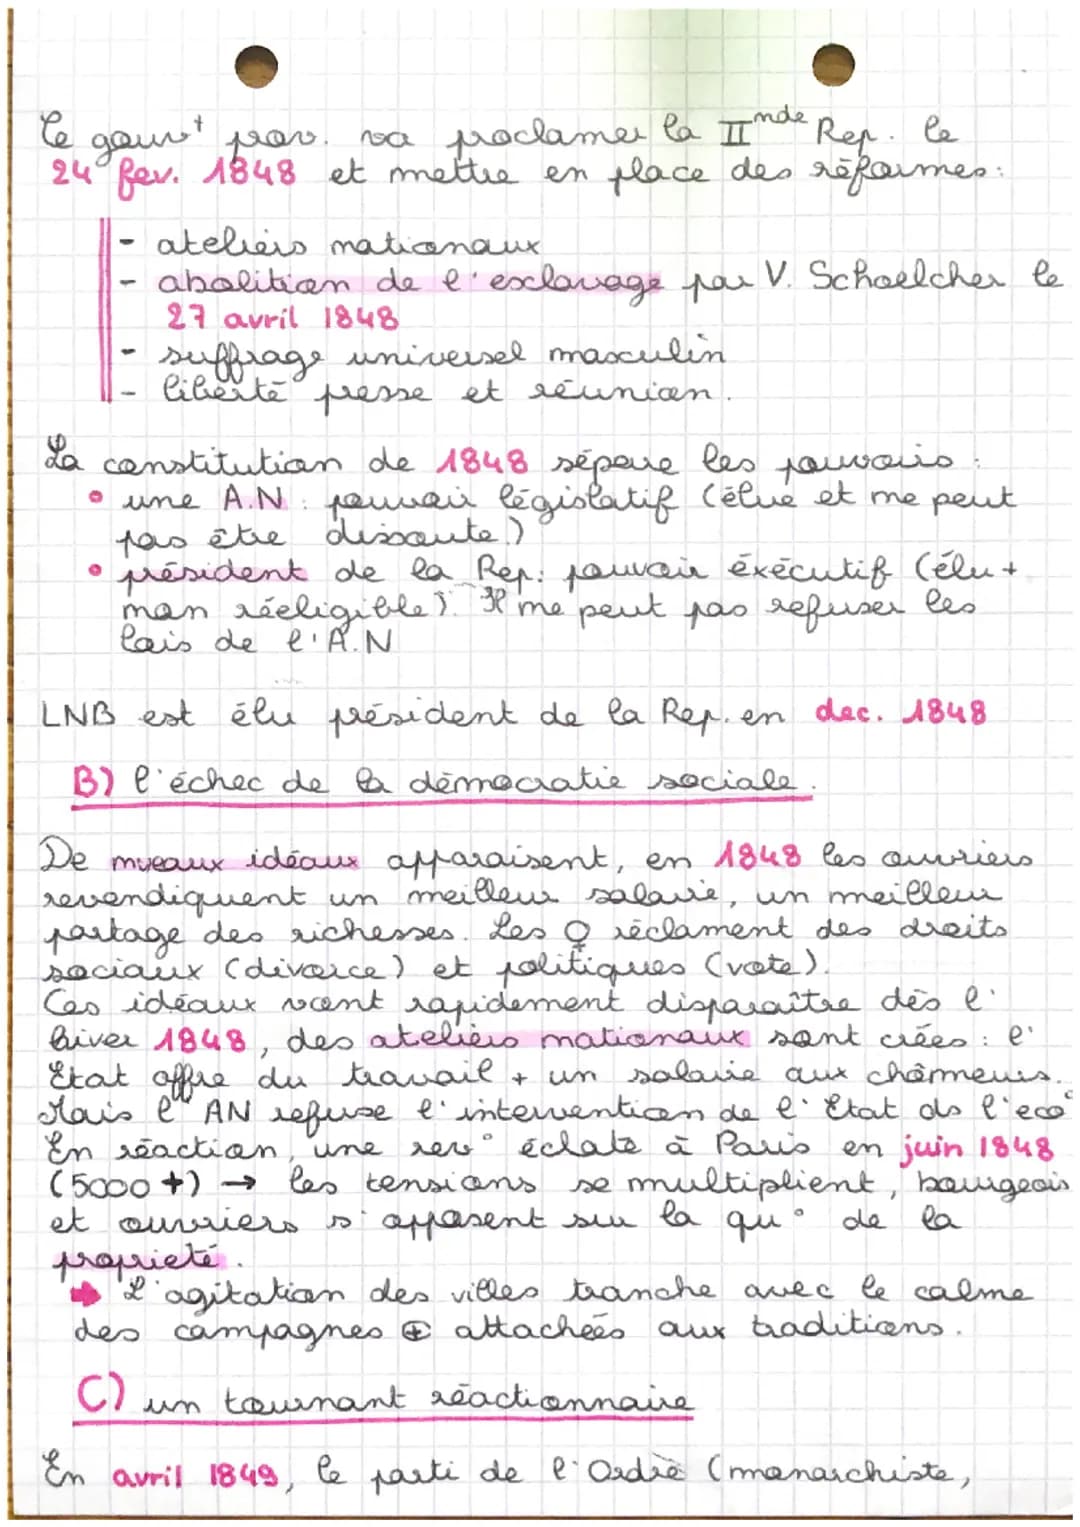 le gouvt prov. va proclamer la IInde Rep. le
24 fev. 1848 et mettre en place des réformes:
- ateliers nationaux
- abolition de l'esclavage par V. Schoelcher le
27 avril 1848
- suffrage universel masculin
- liberté presse et réunion.
La constitution de 1848 sépare les pouvoirs :
• une A.N : pouvoir législatif (élue et ne peut
pas être dissoute.)
• président de la Rep: pouvoir éxécutif (élu +
non rééligible). Il ne peut pas refuser les
lois de l'A.N
LNB est élu président de la Rep. en dec. 1848
B) l'échec de la démocratie sociale.
De nveaux idéaux apparaisent, en 1848 les ouvriers
revendiquent un meilleur salaire, un meilleur
partage des richesses. Les ♀ réclament des droits
sociaux (divorce) et politiques (vote).
Ces idéaux vont rapidement disparaître dès l'
hiver 1848, des ateliers nationaux sont crées : l'
Etat offre du travail + un salaire aux chômeurs.
Mais l'AN refuse l'intervention de l'Etat ds l'eco°
En réaction, une rev° éclate à Paris en juin 1848
(5000 +) → les tensions se multiplient, bourgeois
et ouvriers s'opposent sur la qu° de la
proprieté.
➡ L'agitation des villes tranche avec le calme
des campagnes ⊕ attachées aux traditions.
C) un tournant réactionnaire
En avril 1849, le parti de l'Ordre (monarchiste,